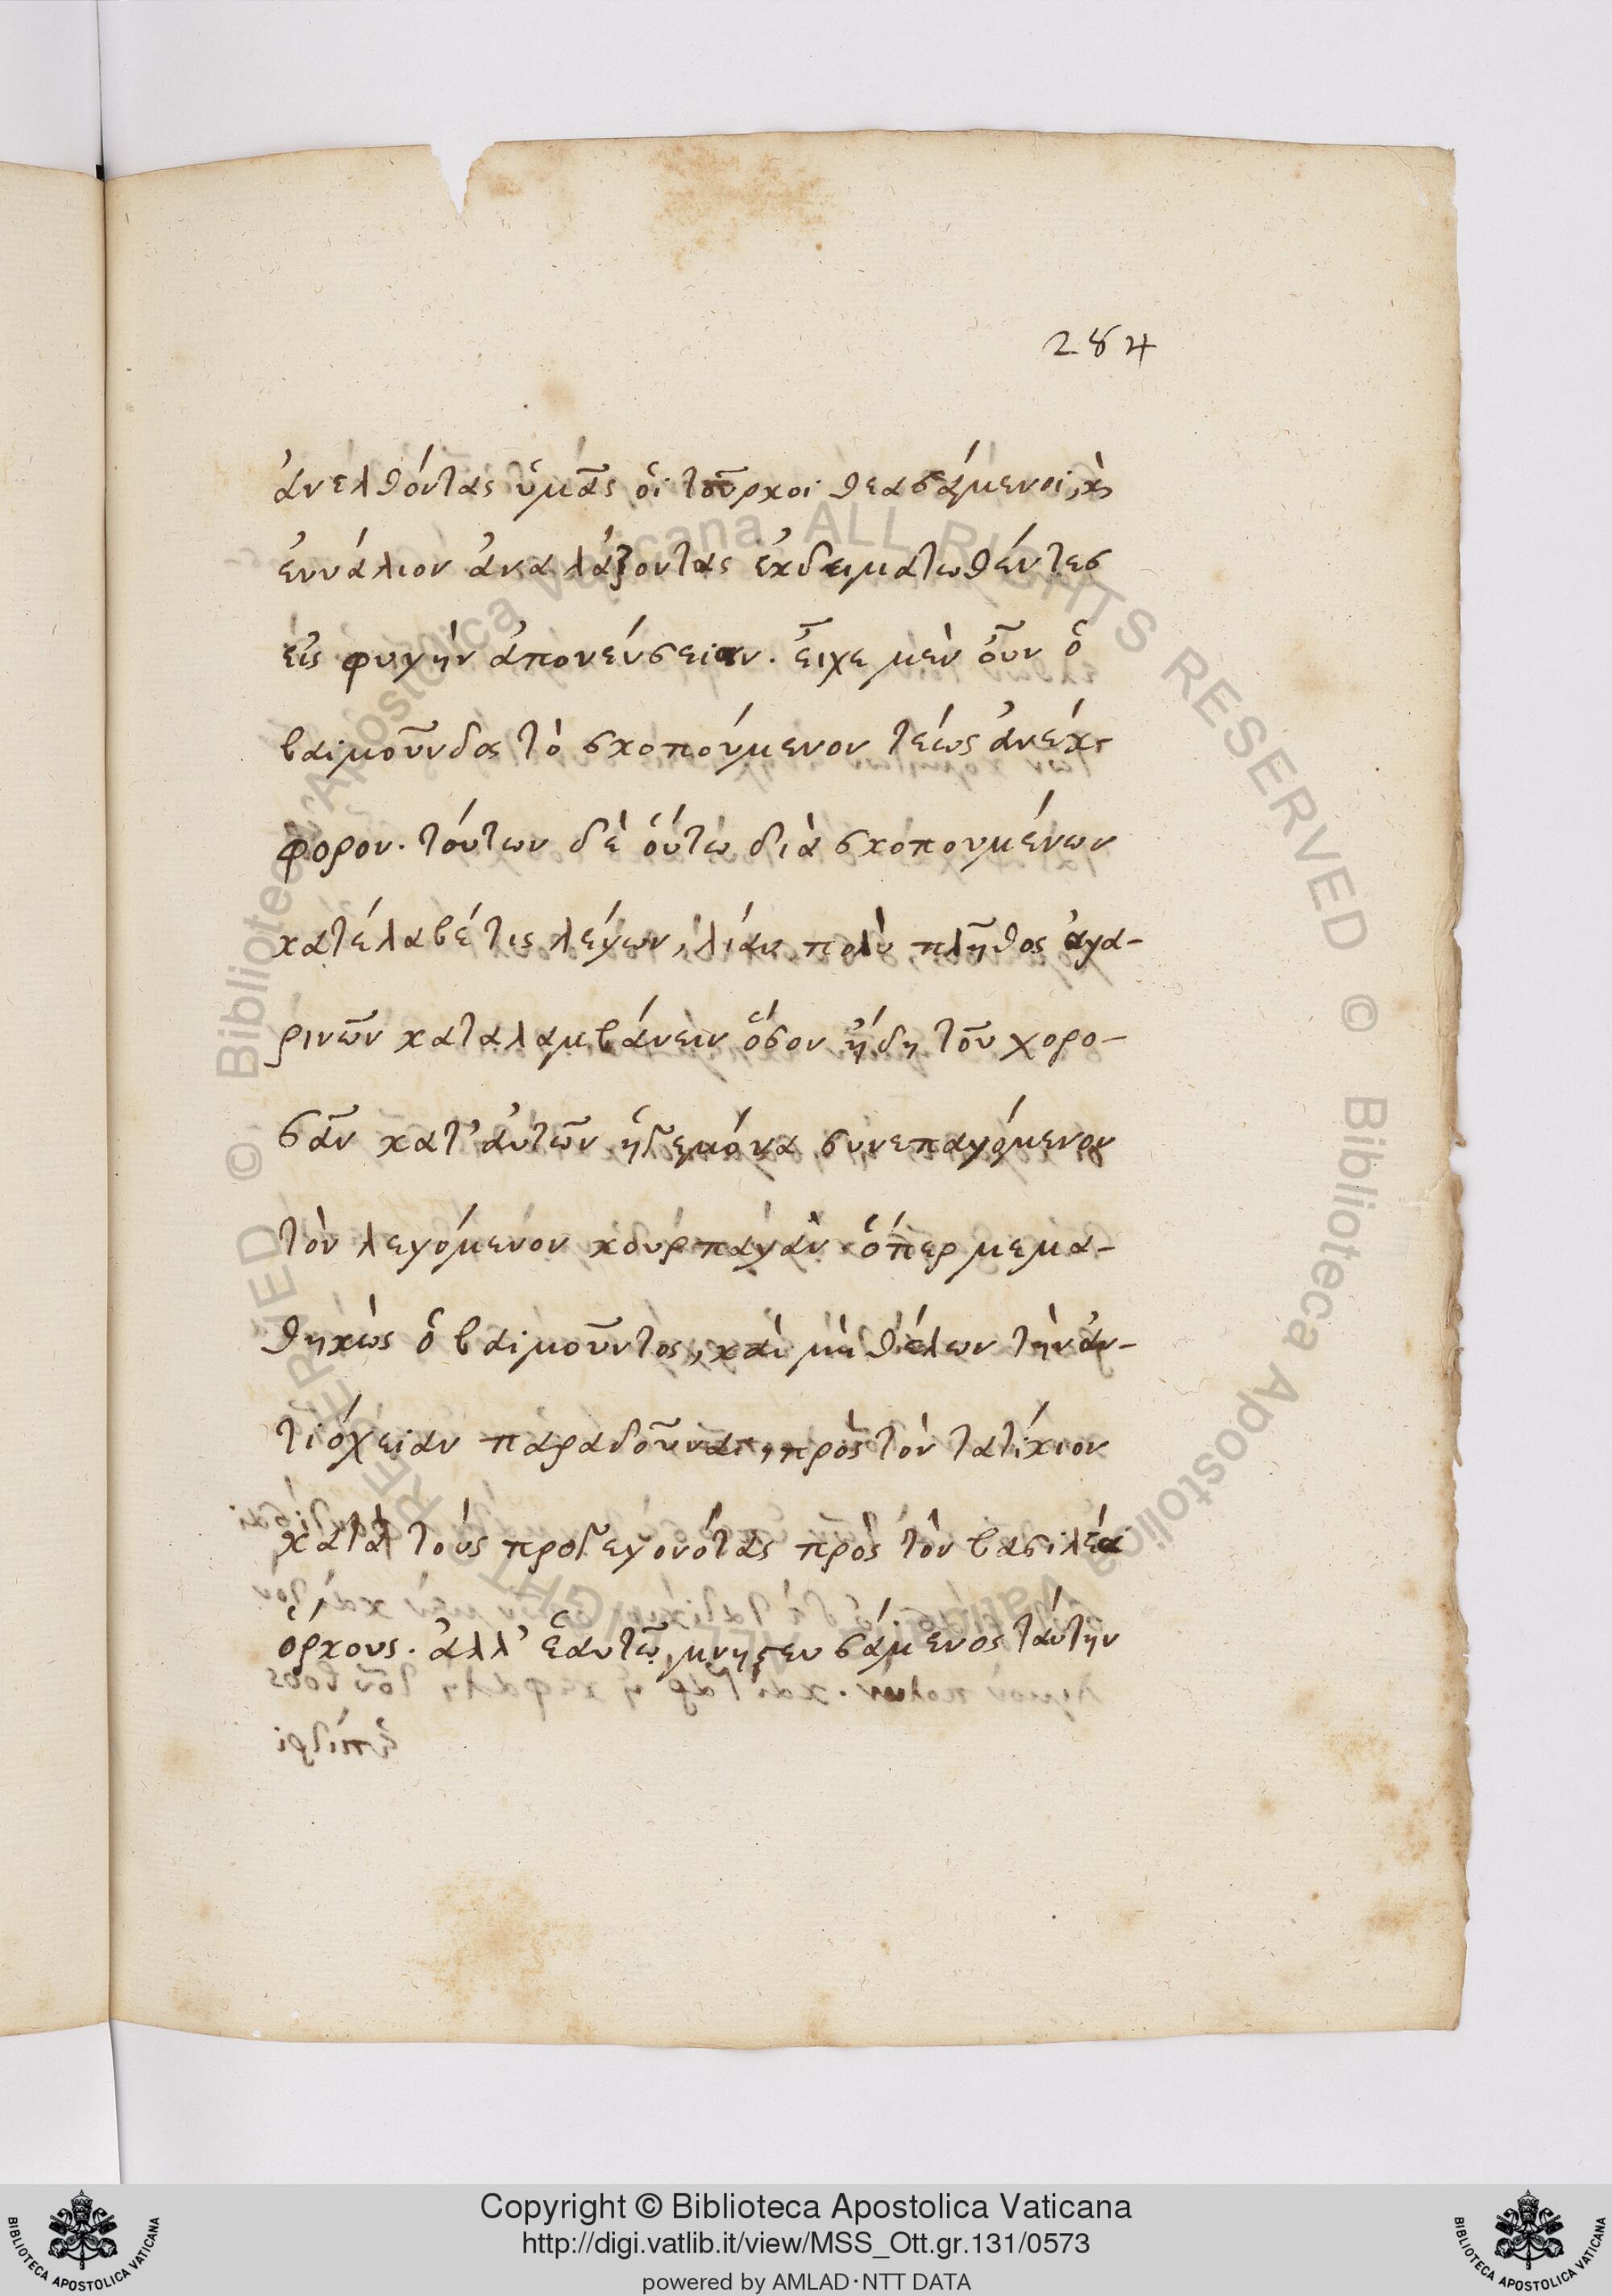 284
ἀνελθόντας ὑμᾶς οἱ τοῦρκοι θεασάμενοι, κ̀
ἐνυάλιον ἀναλάζοντας ἐκδειματωθέντες
εἰς φυγὴν ἀπονεύσειαν. εἶχε μὲν οὖν ὁ
βαϊμοῦνδος τὸ σκοπούμενον τέως ἀνέκ-
φορον. τούτων δὲ οὕτω διὰ σκοπουμένων
κατέλαβέ τις λέγων, λίαν πολὺ πλῆθος ἀγα-
ρινῶν καταλαμβάνειν ὅσον ἤδη τοῦ χορο-
σᾶν κατ' αὐτῶν ἡγεμόνα συνεπαγόμενον
τὸν λεγόμενον κουρπαγὰν ὅπερ μεμα-
θηκὼς ὁ βαϊμοῦντος, καὶ μὴ θέλων τὴν ἀν-
τιόχειαν παραδοῦναι, πρὸς τὸν τατίκιον
κατὰ τοὺς προγεγονότας πρὸς τὸν βασιλέα
ὅρκους. ἀλλ' ἑαυτῷ μνηστευσάμενος ταύτην
Copyright © Biblioteca Apostolica Vaticana
http://digi.vatlib.it/view/MSS_Ott.gr.131/0573
powered by AMLAD·NTT DATA
BIBLIOTECA APOSTOLICA VATICANA
BIBLIOTECA APOSTOLICA VATICANA
© Biblioteca Apostolica Vaticana ALL RIGHTS RESERVED © Biblioteca Apostolica Vaticana ALL RIGHTS RESERVED